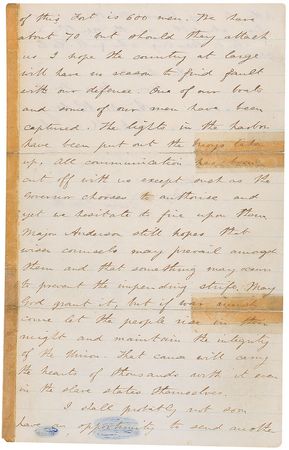 of this Fort is 600 men. We have
about 70 but should they attack
us I hope the country at large
will have no season to find fault
with our defense. One of our boats
and some of our men have been
captured. The lights in the harbor
have been put out the buoys taken
up. All communication has been
cut off with us except such as the
Governor chooses to authorise and
yet we hesitate to fire upon them
Major Anderson still hopes that
wiser counsels may prevail amongst
them and that something may occur
to prevent the impending strife. May
God grant it, but if war must
come let the people rise in their
might and maintain the integrity
of the Union. That cause will carry
the hearts of thousands with it even
in the slave states themselves.
I shall probably not soon
have an opportunity to send another